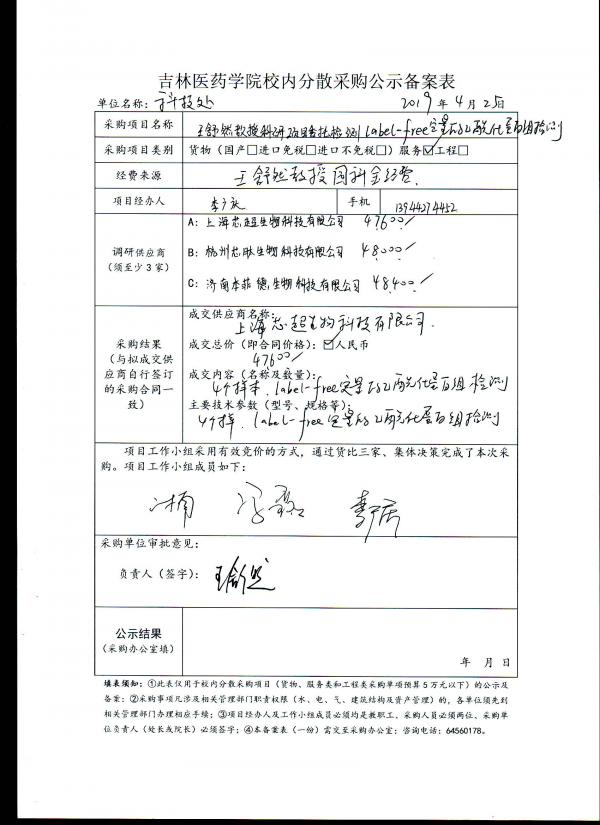 吉林医药学院校内分散采购公示备案表
单位名称：科技处 2019年4月25日
采购项目名称 王舒然教授科研项目委托检测label-free定量的乙酰化蛋白组检测
采购项目类别 货物（国产□进口免税□进口不免税□）服务☑工程□
经费来源 王舒然教授国科金经费.
项目经办人 手机 13944274452
调研供应商
（须至少3家）
A：上海芯超生物科技有限公司 47600/
B：杭州 生物科技有限公司 48000/
C：济南 德生物科技有限公司 48400/
采购结果
（与拟成交供
应商自行签订
的采购合同一
致）
成交供应商名称：
上海芯超生物科技有限公司.
成交总价（即合同价格）：☑人民币
47600/
成交内容（名称及数量）：
4个样本. label-free定量的乙酰化蛋白组检测
主要技术参数（型号、规格等）：
4个样. label-free定量的乙酰化蛋白组检测
项目工作小组采用有效竞价的方式，通过货比三家、集体决策完成了本次采
购。项目工作小组成员如下：
采购单位审批意见：
负责人（签字）： 王舒然
公示结果
（采购办公室填）
年 月 日
填表须知：①此表仅用于校内分散采购项目（货物、服务类和工程类采购单项预算5万元以下）的公示及
备案；②采购事项凡涉及相关管理部门职责权限（水、电、气、建筑结构及资产管理）的，各单位须先到
相关管理部门办理相应手续；③项目经办人及工作小组成员必须均是教职工，采购人员必须两位、采购单
位负责人（处长或院长）必须签字；④本备案表（一份）需交至采购办公室；咨询电话：64560178。